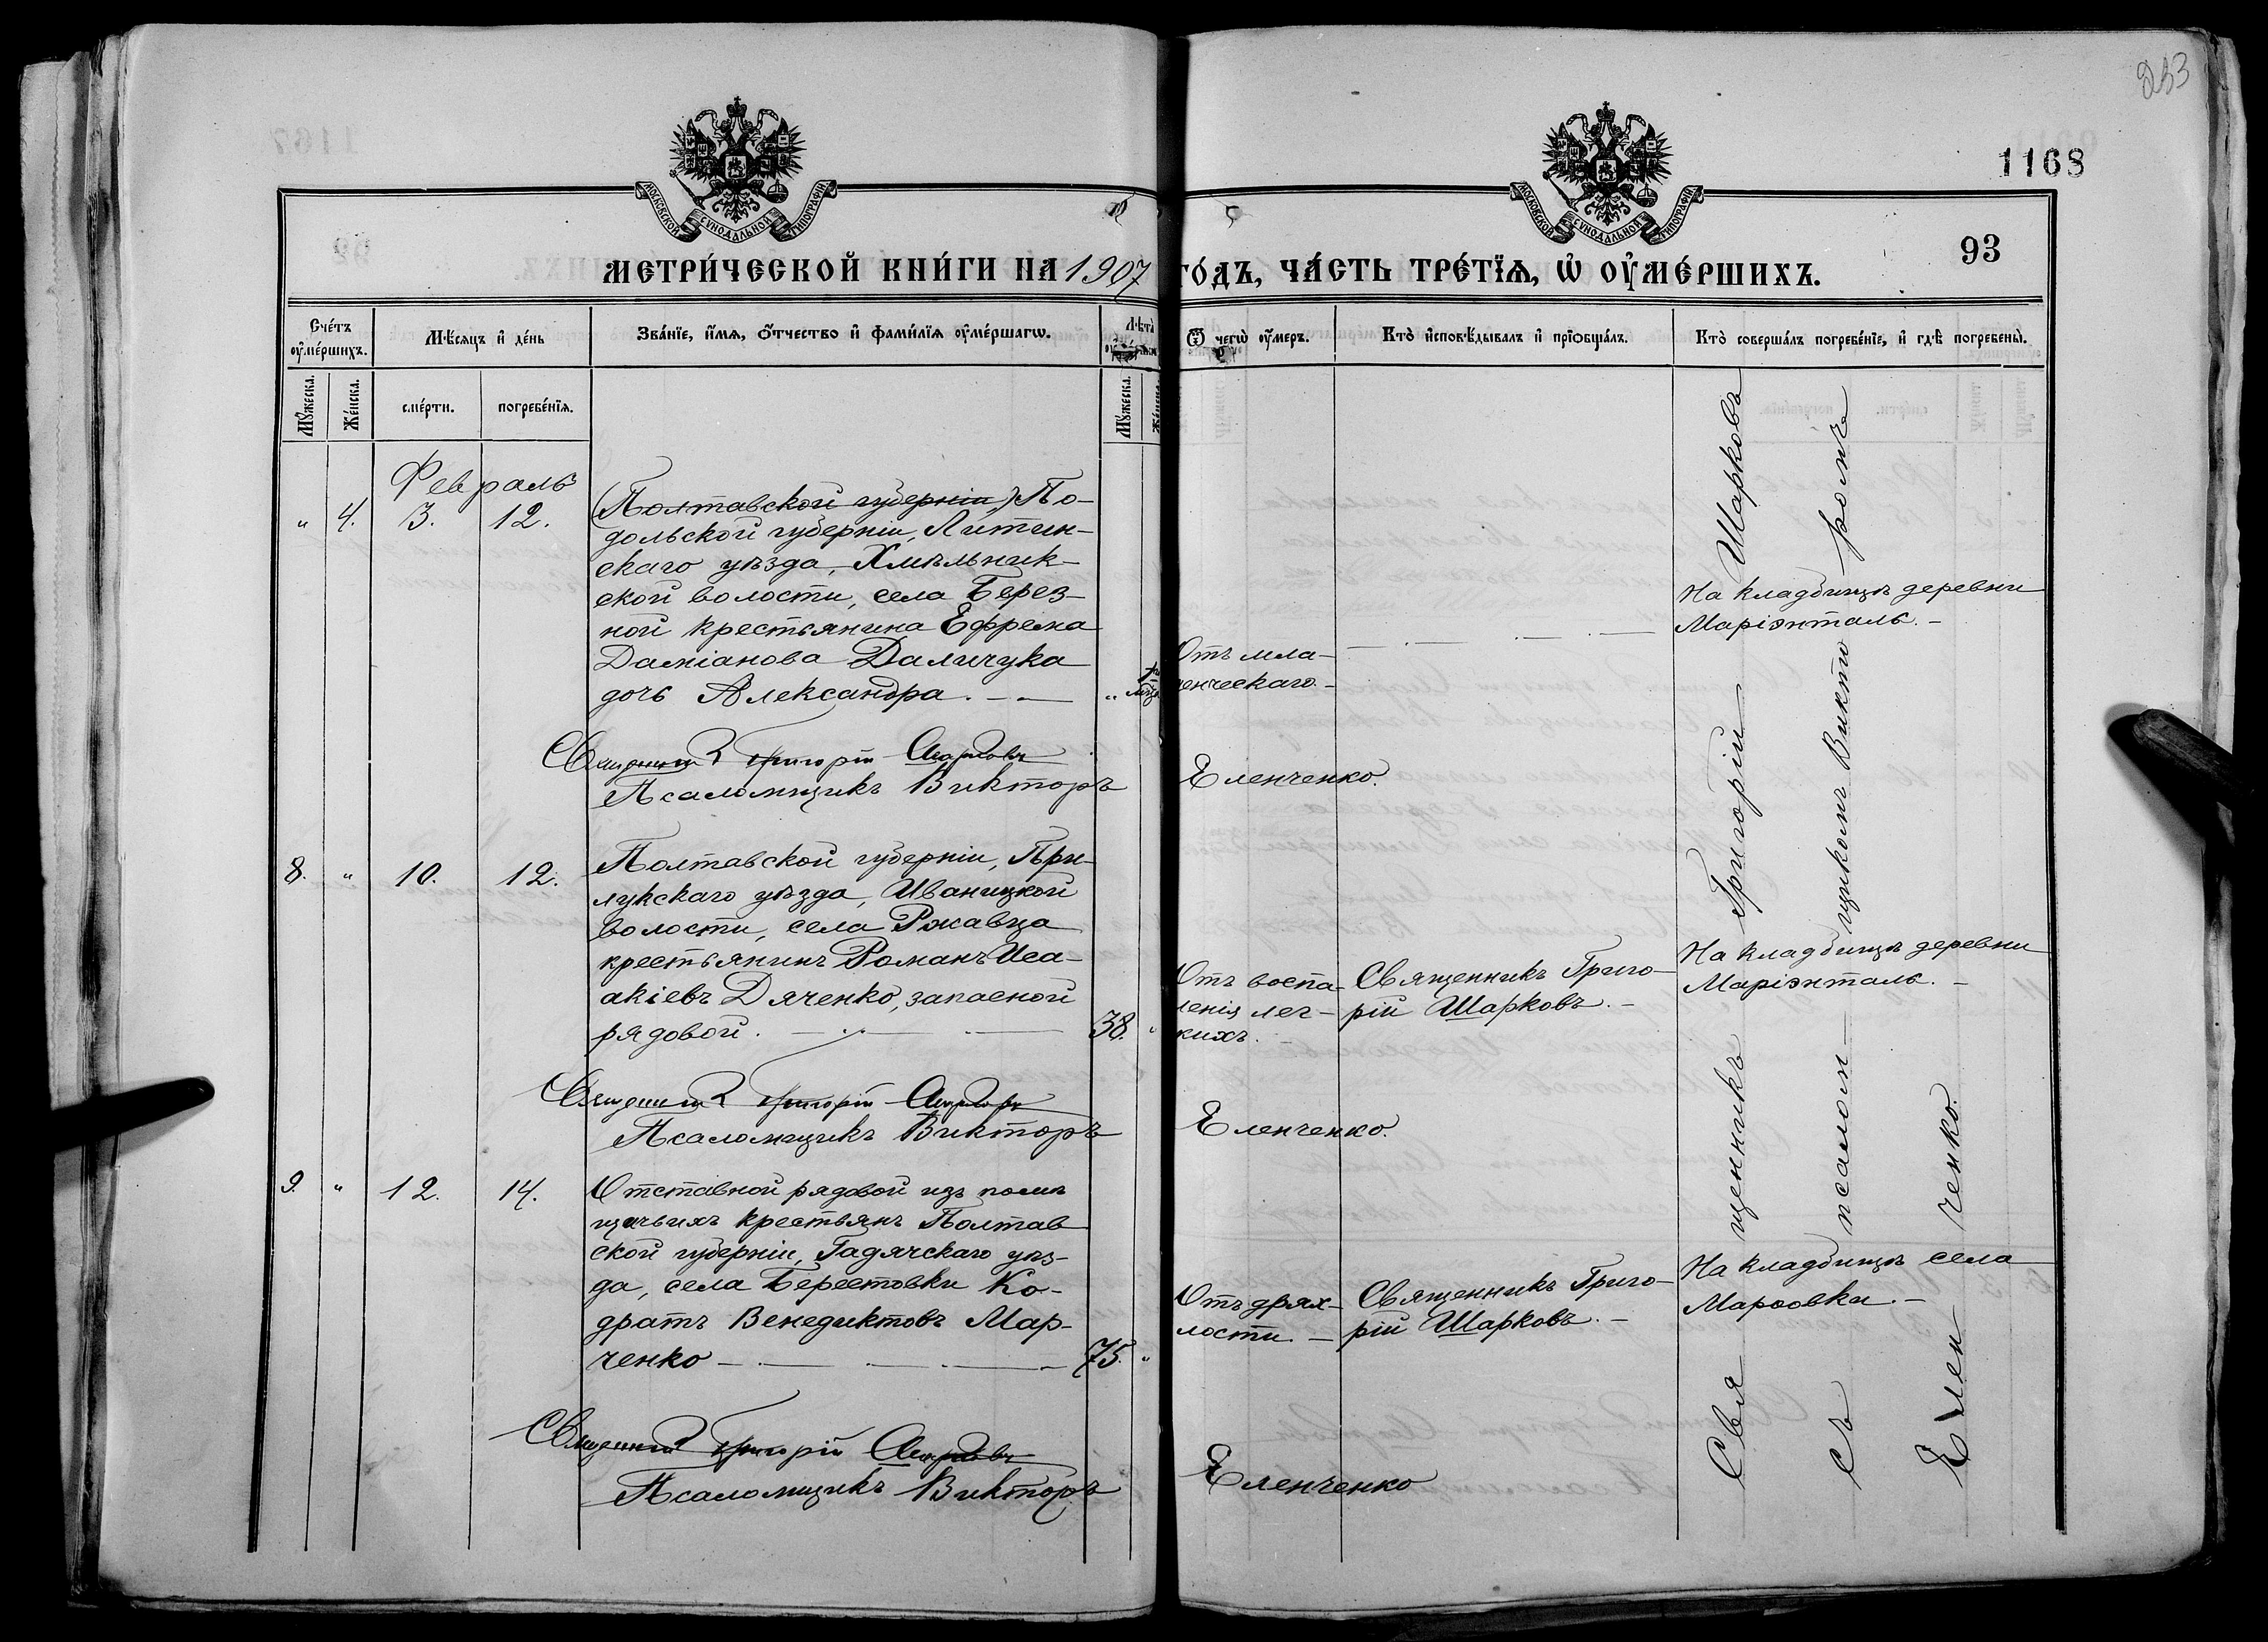 253
1168
93
МОСКОВСКОЙ СѴНОДАЛЬНОЙ ТИПОГРАФІИ
МОСКОВСКОЙ СѴНОДАЛЬНОЙ ТИПОГРАФІИ
МЕТРИ́ЧЕСКОЙ КНИ́ГИ НА 1907 ГО́ДЪ, ЧА́СТЬ ТРЕ́ТЇѦ, Ѡ҆ ОУ҆МЕ́РШИХЪ.
Сче́тъ оу҆ме́ршихъ.
Мѣ́сяцъ и҆ де́нь
Зва́нїе, и҆́мѧ, ѻ҆́тчество и҆ фами́лїѧ оу҆ме́ршагѡ.
Лѣ́та
Ѿ чегѡ̀ оу҆́меръ.
Кто̀ и҆сповѣ́дывалъ и҆ прїѡбща́лъ.
Кто̀ соверша́лъ погребе́нїе, и҆ гдѣ̀ погребены̀.
Мꙋ́жеска.
Же́нска.
сме́рти.
погребе́нїѧ.
Мꙋ́жеска.
Же́нска.
Февраль
„ 4. 3. 12.
(Полтавской губерніи) По-
дольской губерніи, Литин-
скаго уѣзда, Хмѣльник-
ской волости, села Берез-
ной крестьянина Ефрема
Даміанова Даличука
дочь Александра. — „
Отъ мла-
денческаго. —
На кладбищѣ деревни
Маріэнталь. —
Священникъ Григорій Шарковъ
Псаломщикъ Викторъ Еленченко.
8. „ 10. 12.
Полтавской губерніи, При-
лукскаго уѣзда, Иваницкой
волости, села Ржавца
крестьянинъ Романъ Иса-
акіевъ Дяченко, запасной
рядовой. — 38. „
Отъ воспа-
ленія лег-
кихъ.
Священникъ Григо-
рій Шарковъ. —
На кладбищѣ деревни
Маріэнталь. —
Священникъ Григорій Шарковъ
Псаломщикъ Викторъ Еленченко.
9. „ 12. 14.
Отставной рядовой изъ помѣ
щичьихъ крестьянъ Полтав
ской губерніи, Гадячскаго уѣз-
да, села Берестовки Ко-
дратъ Венедиктовъ Мар-
ченко — 75. „
Отъ дрях-
лости. —
Священникъ Григо-
рій Шарковъ. —
На кладбищѣ села
Марѳовки. —
Священникъ Григорій Шарковъ
Псаломщикъ Викторъ Еленченко
Священникъ Григорій Шарковъ
съ псаломщикомъ Викторомъ
Еленченко.